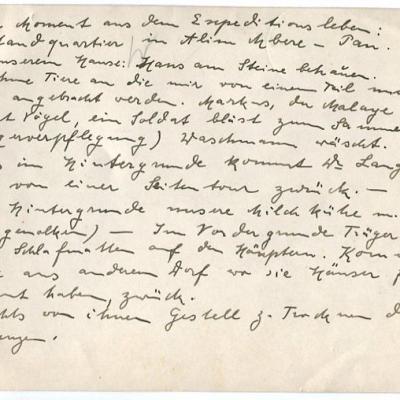 Moment aus dem Expeditionsleben:
Standquartier in Alim Mbere - Pan.
unserem Hause: Hans am Steine behauen.
Tiere an die mir von einem Teil
angebracht werden. Markus, der Malaye
Vögel, ein Soldat bläst zum Samme
verpflegung) Waschmann wäscht.
im Hintergrunde kommt Dr. Lang
von einer Seitentour zurück. —
Hintergrunde unsere Milchkühe
gemolken) — Im Vordergrunde Träger
Schlafmatten auf den Häuptern.
aus anderem Dorf wo sie Häuser
haben, zurück.
von ihnen Gestell z. Trocknen